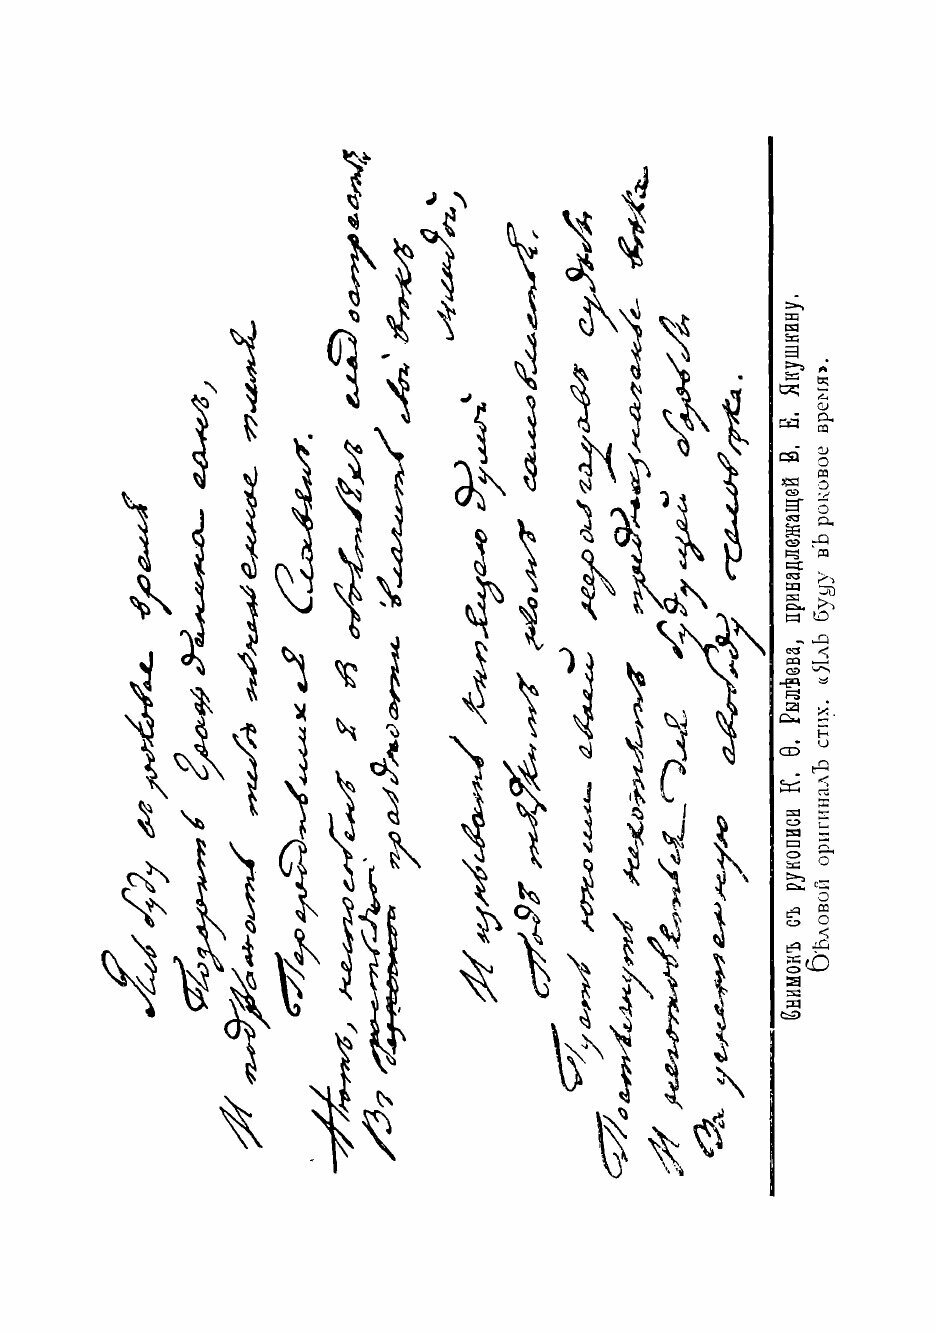 Яль буду въ роковое время
Позорить Гражданина санъ,
И подражать тебѣ изнеженное племя
Переродившихся Славянъ.
Нѣтъ, неспособенъ я въ объятьяхъ сладострастья
Въ постыдной праздности влачить свой вѣкъ
младой,
И изнывать кипящею душой
Подъ тяжкимъ игомъ самовластья.
Пусть юноши своей неразгадавъ судьбы
Постигнуть нехотятъ предназначенье вѣка
И неготовятся для будущей борьбы
За угнетенную свободу человѣка.
Снимокъ съ рукописи К. Ѳ. Рылѣева, принадлежащей В. Е. Якушкину.
Бѣловой оригиналъ стих. «Яль буду въ роковое время».